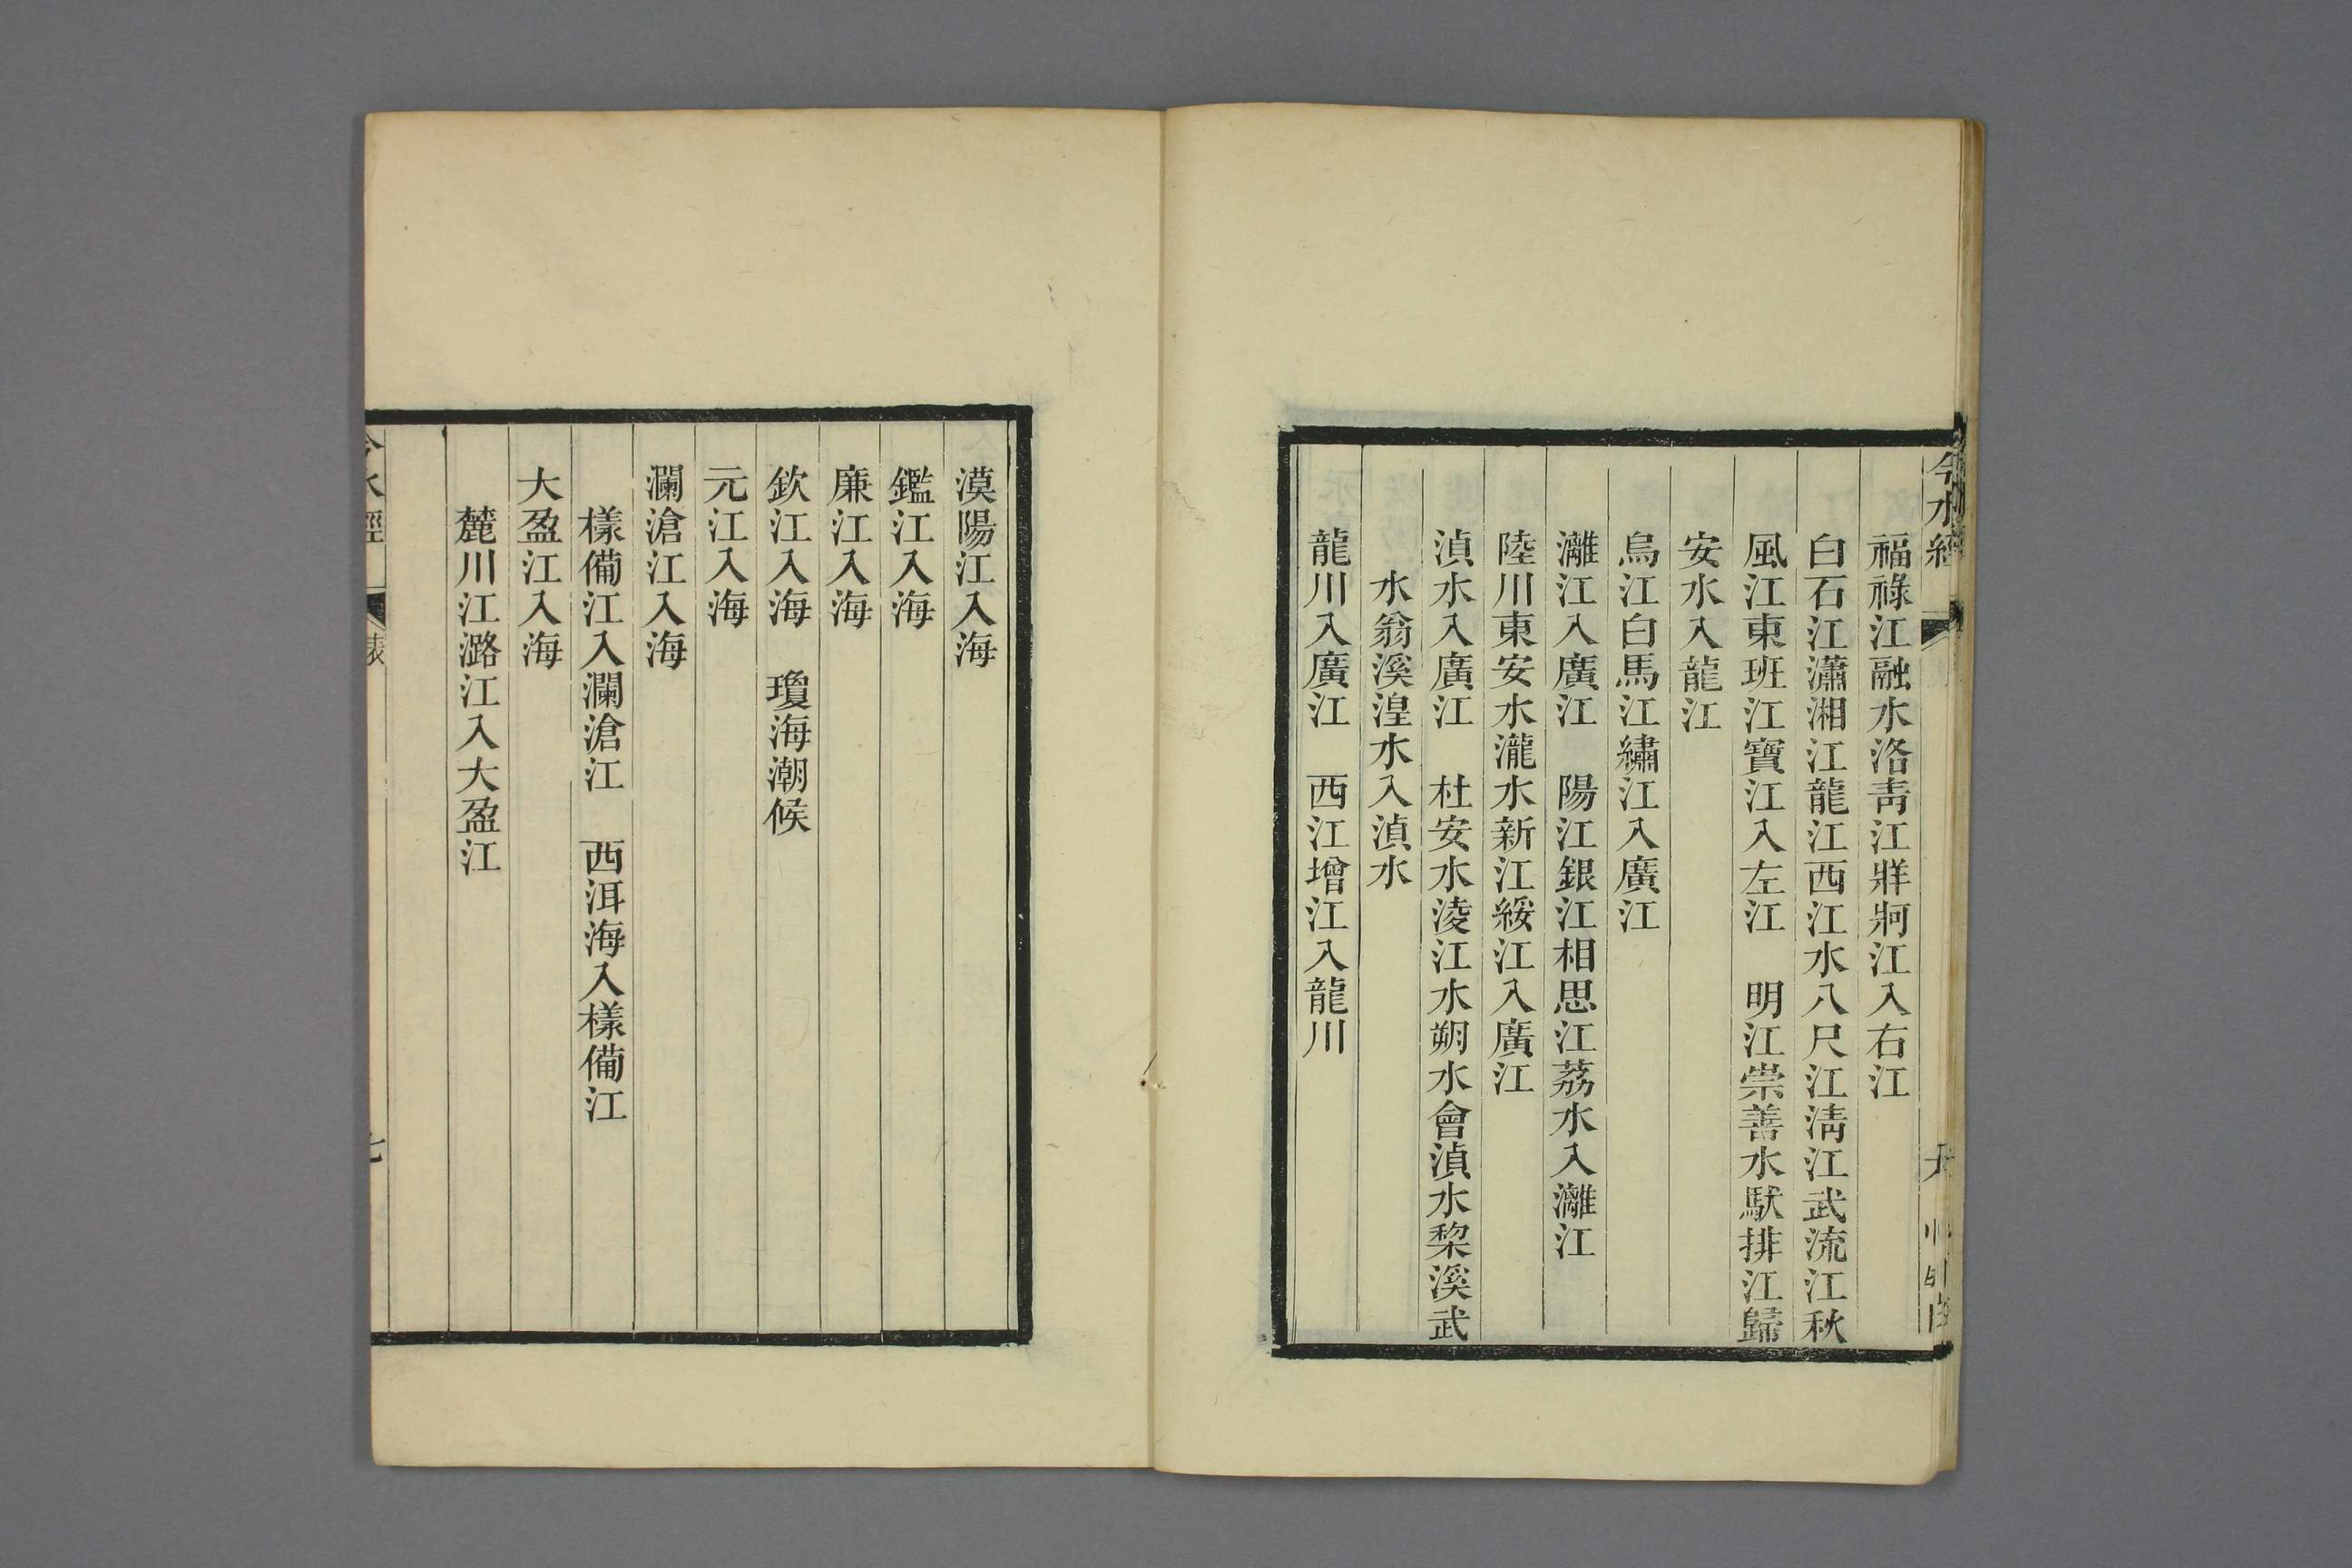 今水經
福祿江融水洛靑江牂牁江入右江
白石江瀟湘江龍江西江水八尺江淸江武流江秋
風江東班江寶江入左江　明江崇善水馱排江歸
安水入龍江
烏江白馬江繡江入廣江
灕江入廣江　陽江銀江相思江荔水入灕江
陸川東安水瀧水新江綏江入廣江
湞水入廣江　杜安水淩江水朔水會湞水棃溪武
水翁溪湟水入湞水
龍川入廣江　西江增江入龍川
漠陽江入海
鑑江入海
廉江入海
欽江入海　瓊海潮候
元江入海
瀾滄江入海
樣備江入瀾滄江　西洱海入樣備江
大盈江入海
麓川江潞江入大盈江
今水經　表　七